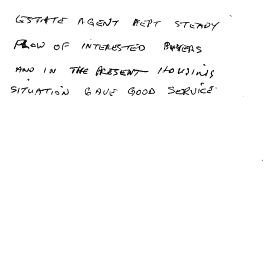 ESTATE AGENT KEPT STEADY
FLOW OF INTERESTED BUYERS
AND IN THE PRESENT HOUSING
SITUATION GAVE GOOD SERVICE